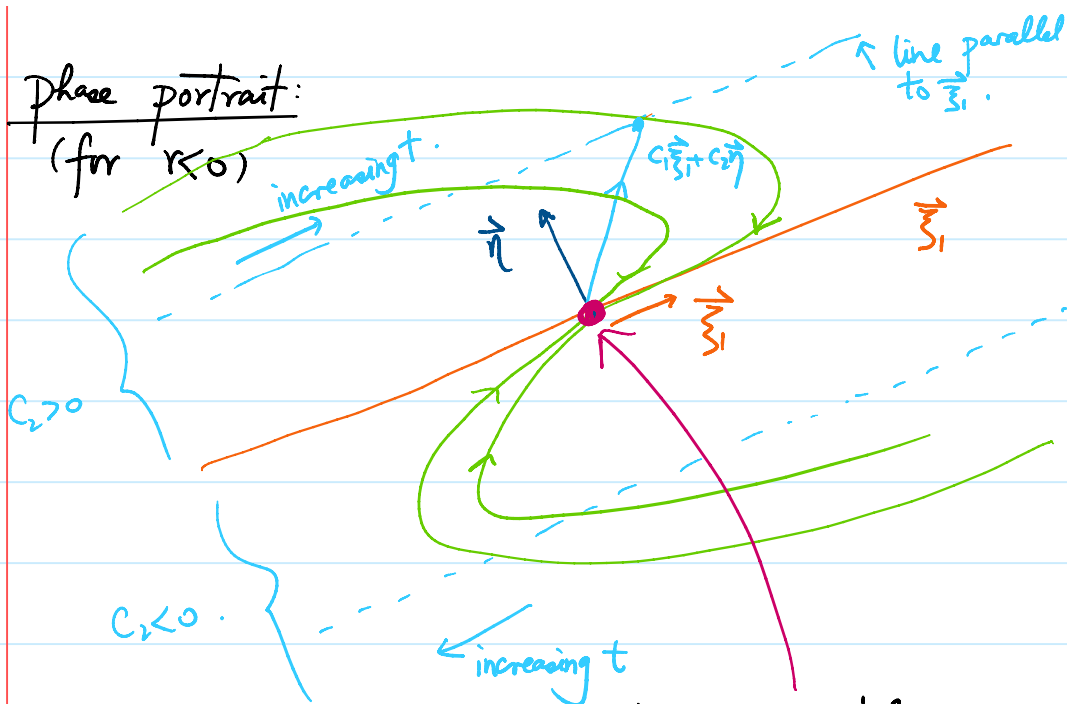 phase portrait:
(for r<0)
↖ line parallel
to ξ⃗₁.
increasing t.
c₁ξ⃗₁+c₂η⃗
ξ⃗₁
η⃗
ξ⃗₁
C₂>0
C₂<0.
increasing t